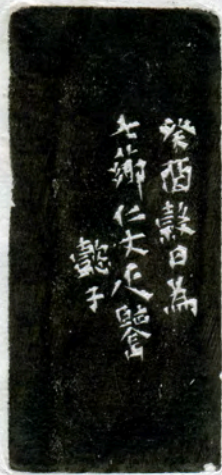 癸酉穀日為
七薌仁丈疋鑒
懿子